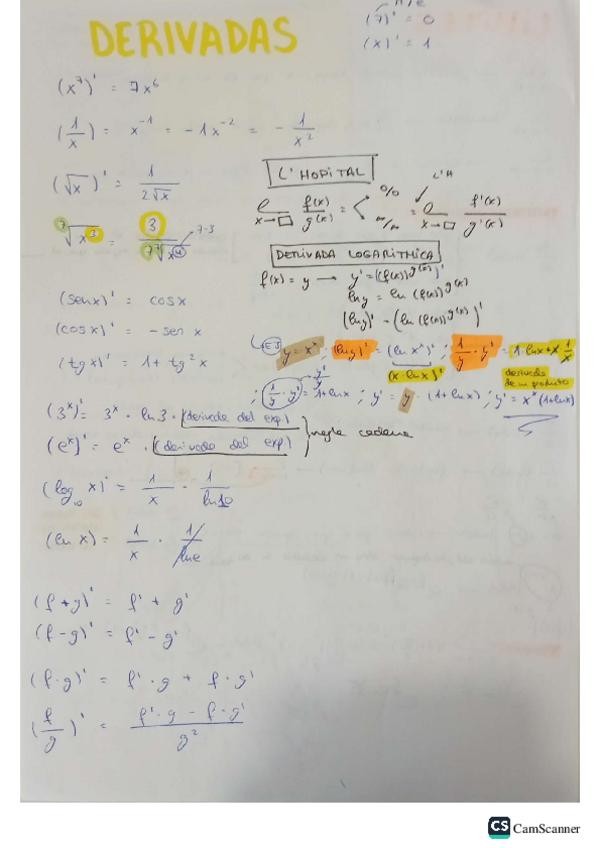 DERIVADAS
(7)' = 0
(x)' = 1
(x⁷)' = 7x⁶
(1/x) = x⁻¹ = -1x⁻² = - 1/x²
(√x)' = 1/2√x
L'HOPITAL
x→□ f(x)/g(x) = < 0/0 ∞/∞ = x→□ f'(x)/g'(x)
L'H
⁷√x³ = 3/7⁷√x⁴ 7-3
DERIVADA LOGARITMICA
f(x) = y → y' = ((f(x))^g(x))'
ln y = ln (f(x))^g(x)
(ln y)' = (ln (f(x))^g(x))'
(sen x)' = cos x
(cos x)' = - sen x
(tg x)' = 1 + tg² x
EJ y = xˣ · (ln y)' = (ln xˣ)' ; 1/y · y' = 1·ln x + x · 1/x
(x·ln x)'
derivada de un producto
; (1/y · y') = 1 + ln x ; y' = y · (1 + ln x) ; y' = xˣ (1+ln x)
y'/y
(3ˣ)' = 3ˣ · ln 3 · (derivada del exp.)
(eˣ)' = eˣ · (derivada del exp.)
regla cadena
(log₁₀ x)' = 1/x · 1/ln 10
(ln x) = 1/x · 1/ln e
(f + g)' = f' + g'
(f - g)' = f' - g'
(f · g)' = f' · g + f · g'
(f/g)' = f' · g - f · g'/g²
CS CamScanner